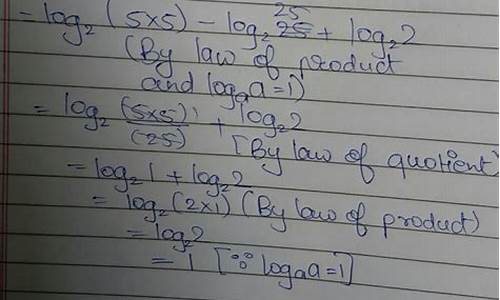 = log₂ (5×5) - log₂ 25 25 + log₂2
(By law of product
and logₐa=1)
= log₂ (5×5)/(25) + log₂2
[By law of quotient)
= log₂1 + log₂2
= log₂(2×1) (By law of product)
= log₂2
= 1 [∵ logₐa=1]